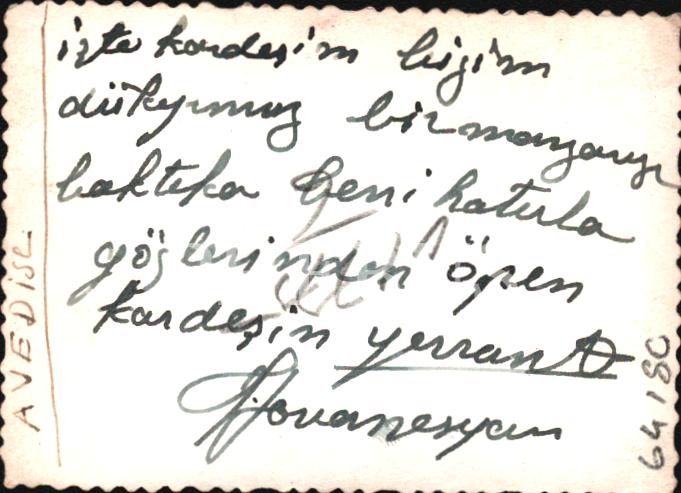 işte kardeşim bizim
dükyımız bir manzarıya
baktıka beni hatırla
gözlerinden öpen
kardeşin yerrant
Hovanesyan
AVEDİSE
64180